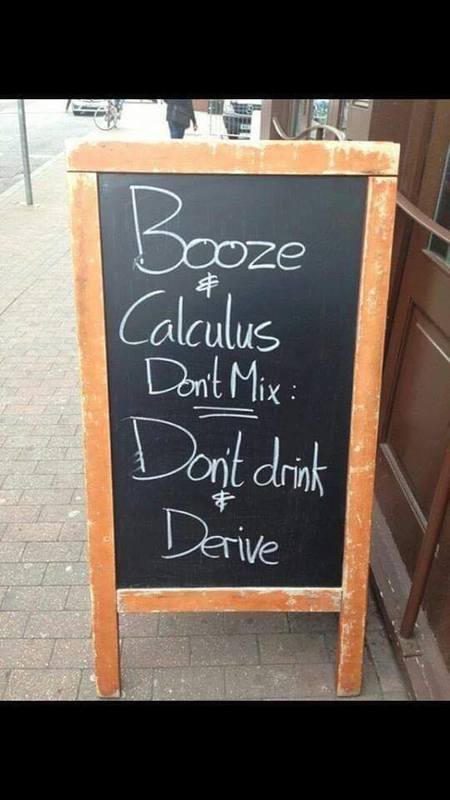 Booze
&
Calculus
Don't Mix :
Don't drink
&
Derive